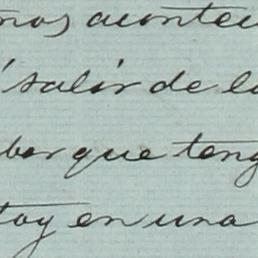 mos acontec
salir de la
ber que teng
toy en una